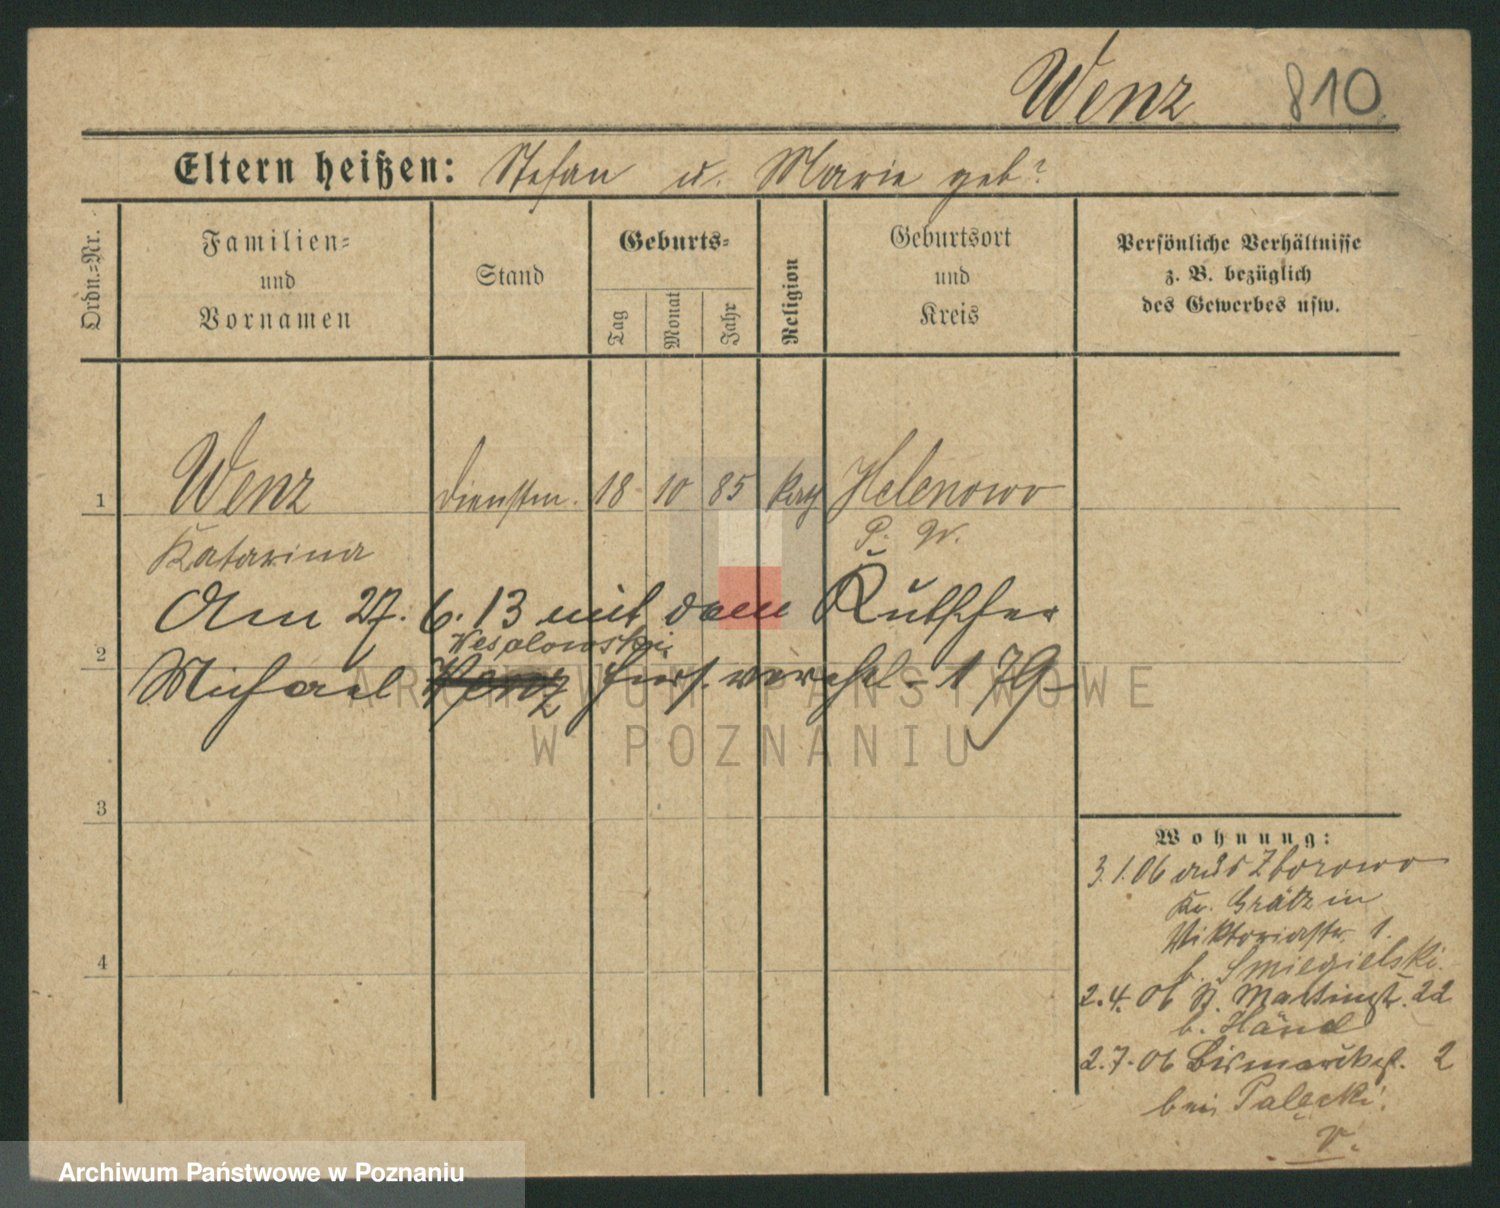 Wenz 810
Eltern heißen: Stefan u. Marie geb?
Ordn.-Nr.
Familien-
und
Vornamen
Stand
Geburts-
Tag
Monat
Jahr
Religion
Geburtsort
und
Kreis
Persönliche Verhältnisse
z. B. bezüglich
des Gewerbes usw.
1 Wenz Dienstm. 18 10 85 kath Helenowo
Katarina P. W.
Am 27. 6. 13 mit dem Kutscher
Wesolowski
2 Michael Wenz hier verehel. - 179 -
3
4
Wohnung:
3.1.06 aus Zborowo
Kr. Grätz in
Viktoriastr. 1.
b. Smiegielski.
2.4.06 St. Martinstr. 22
b. Händ
2.7.06 Bismarckst. 2
bei Palęcki.
V.
ARCHIWUM PAŃSTWOWE
W POZNANIU
Archiwum Państwowe w Poznaniu